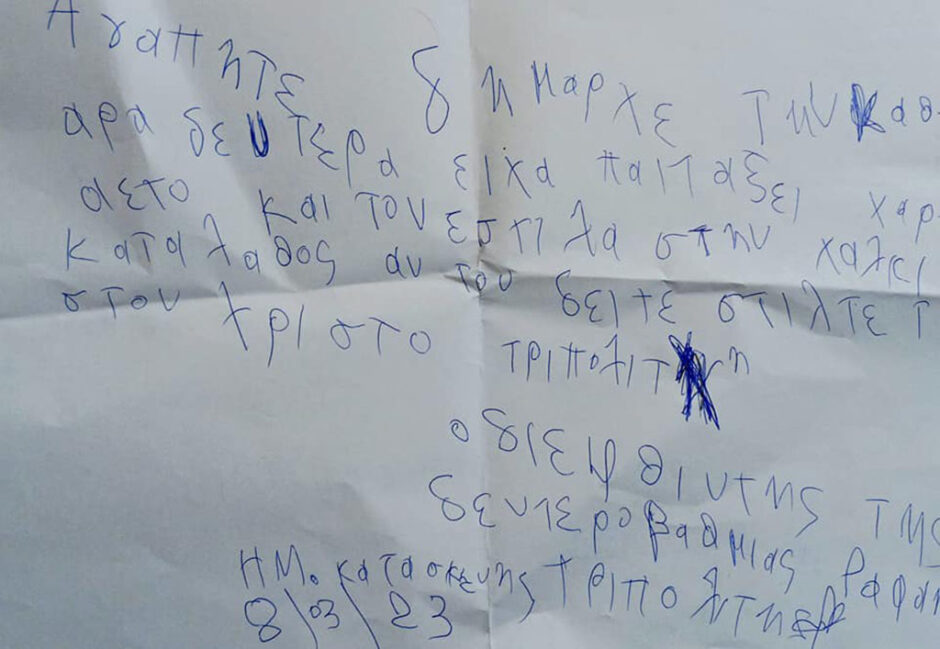 Αγαπητε δημαρχε την καθ
αρα δευτερα ειχα παιταξει χαρ
αετο και τον εστιλα στην χαλκι
κατα λαθος αν τον δειτε στιλτε τ
στον χριστο τριπολιτ η
ο διεφθιντης της
δευτεροβαθμιας ραφαη
ΗΜ. κατασκευης τριπολιτη
8/03/23